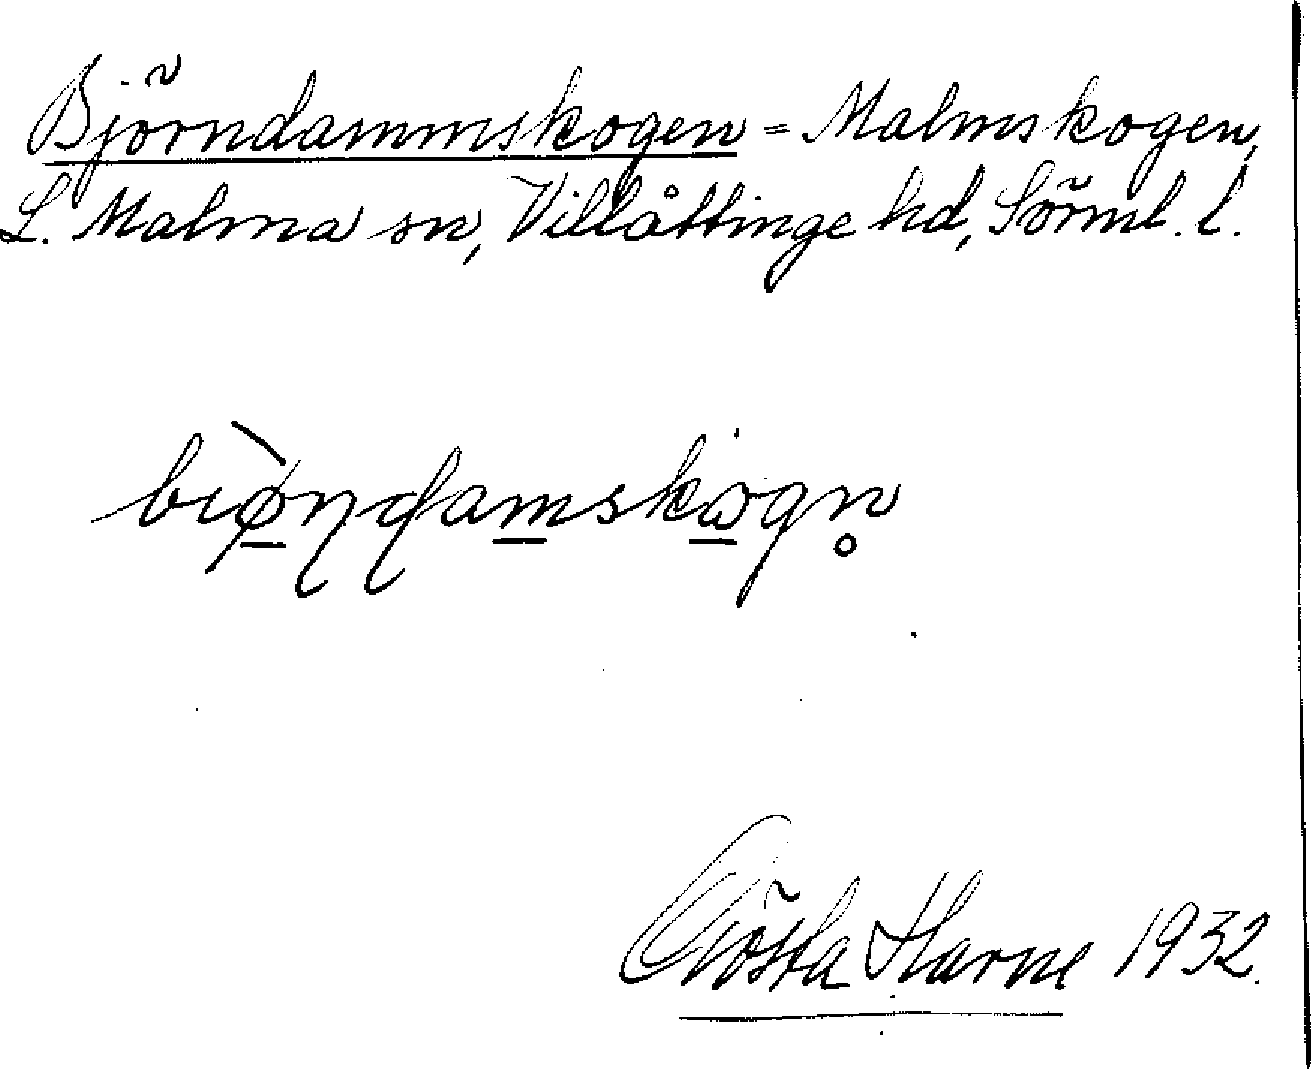 Björndammskogen = Malmskogen,
L. Malma sn, Villåttinge hd, Sörml. l.
Gösta Harne 1932.